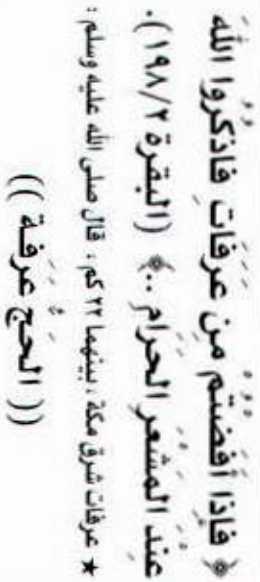 ﴿ فَإِذَا أَفَضْتُمْ مِن عَرَفَاتٍ فَاذكُرُوا اللّهَ
عِنْدَ المَشْعَرِ الحَرَامِ ..﴾ (البقرة ١٩٨/٢).
★ عرفات شرق مكة ، بينهما ٢٢ كم ، قال صلى الله عليه وسلم :
(( الحَجُّ عَرَفَة ))